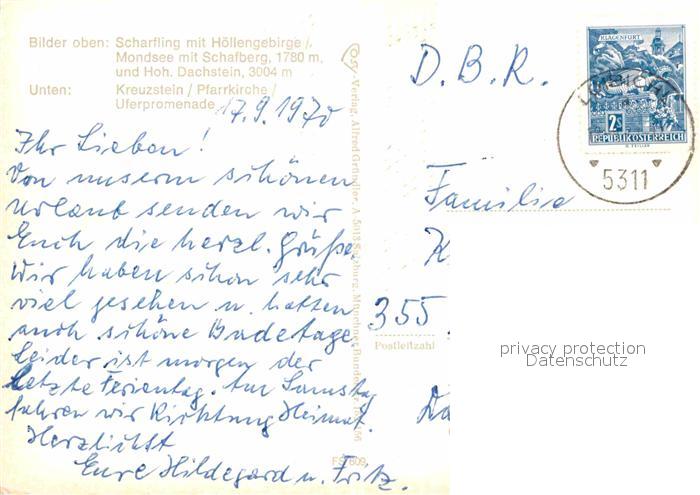 Bilder oben: Scharfling mit Höllengebirge /
Mondsee mit Schafberg, 1780 m,
und Hoh. Dachstein, 3004 m
Unten: Kreuzstein / Pfarrkirche /
Uferpromenade
17.9.1970
Ihr Lieben!
Von unserm schönen
Urlaub senden wir
Euch die herzl. Grüße.
Wir haben schon sehr
viel gesehen u. hatten
auch schöne Badetage.
Leider ist morgen der
letzte Ferientag. Am Samstag
fahren wir Richtung Heimat.
Herzlichst
Eure Hildegard u. Fritz.
Verlag, Alfred Gründler, A 5013 Salzburg, Münchner Bundesstr.
FS 809
D.B.R.
Familie
355
Postleitzahl
KLAGENFURT
2s
REPUBLIK ÖSTERREICH
5311
privacy protection
Datenschutz